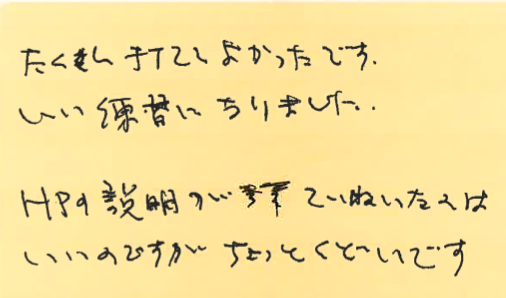 たくさん打ててよかったです。
いい練習になりました。
HPの説明が ていねいなのは
いいのですが ちょっとくどいです